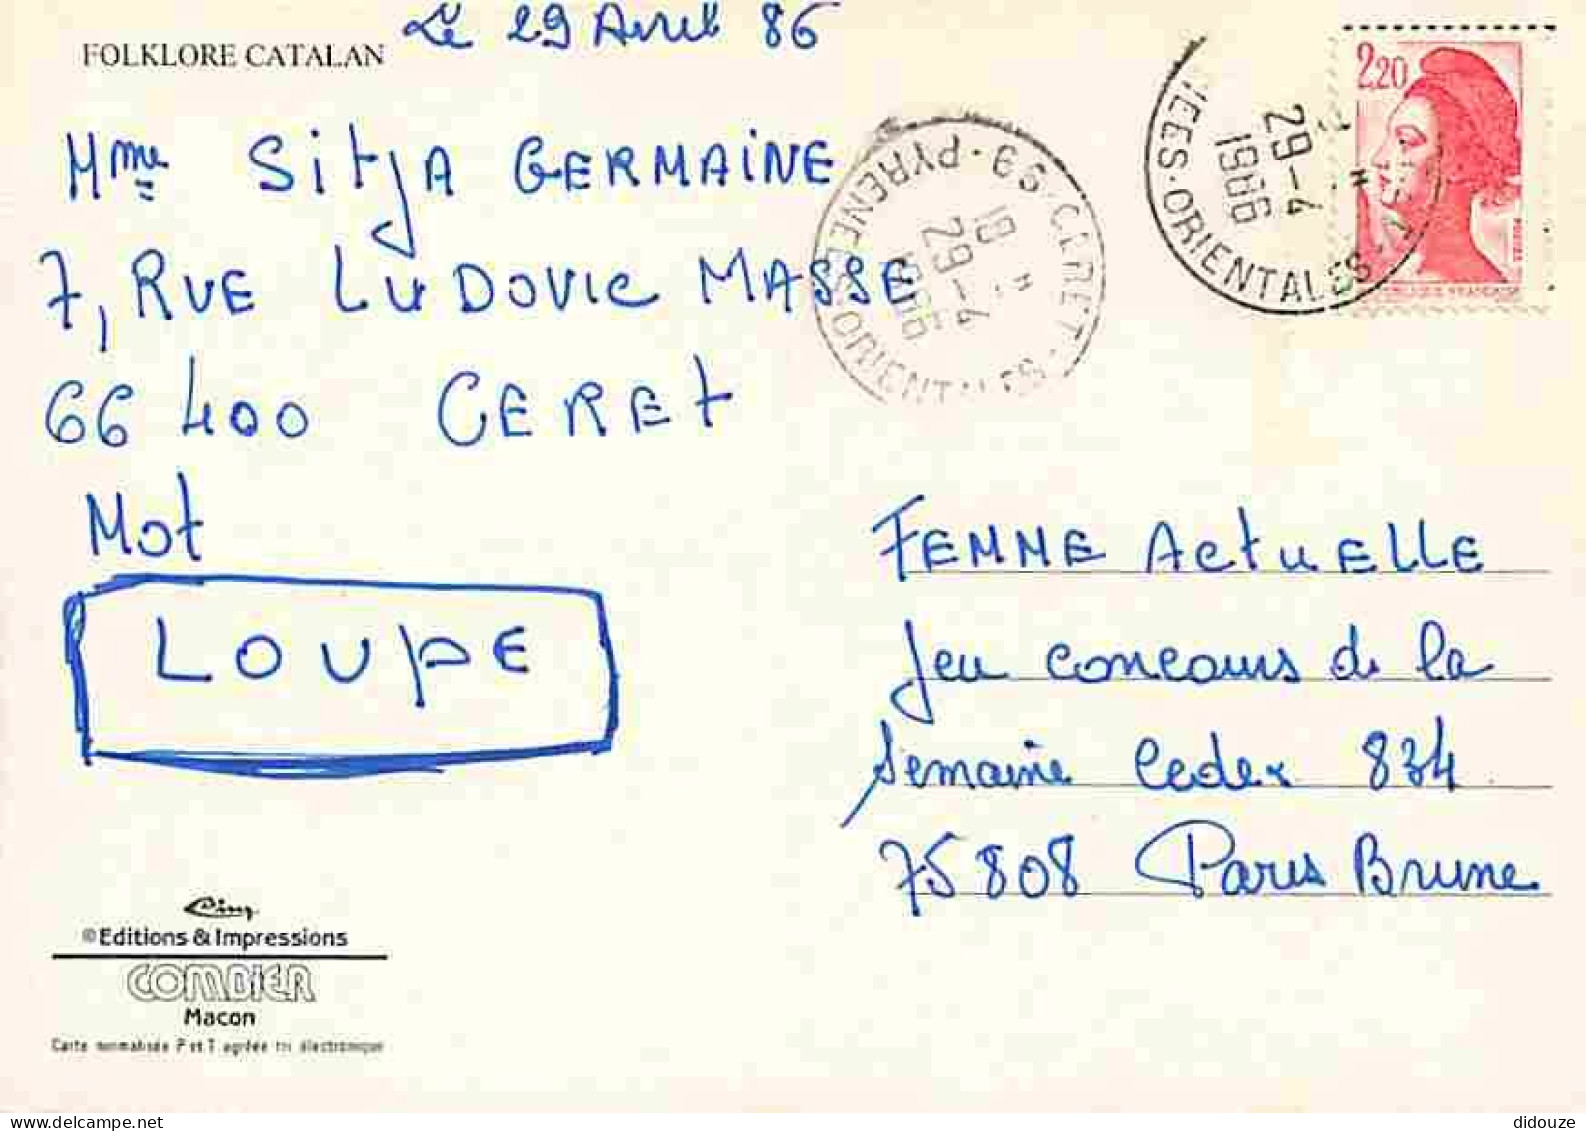 Le 29 Avril 86
FOLKLORE CATALAN
Mme Sitja GERMAINE
7, RUE LUDOVIC MASSE
66 400 CERET
Mot
LOUPE
FEMME ActuELLE
Jeu concours de la
Semaine Cedex 834
75808 Paris Brune
2,20
66 · CERET
PYRENEES-ORIENTALES
18 H
29-4
1986
NEES-ORIENTALES
29-4
1986
Cim
© Editions & Impressions
COMBIER
Macon
Carte normalisée P et T agréée tri électronique
didouze